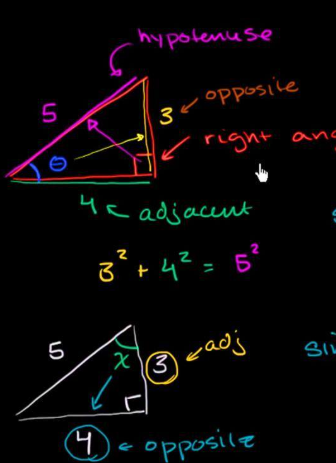 hypotenuse
5
3
opposite
θ
right
4
adjacent
3² + 4² = 5²
5
x
3
adj
4
opposite